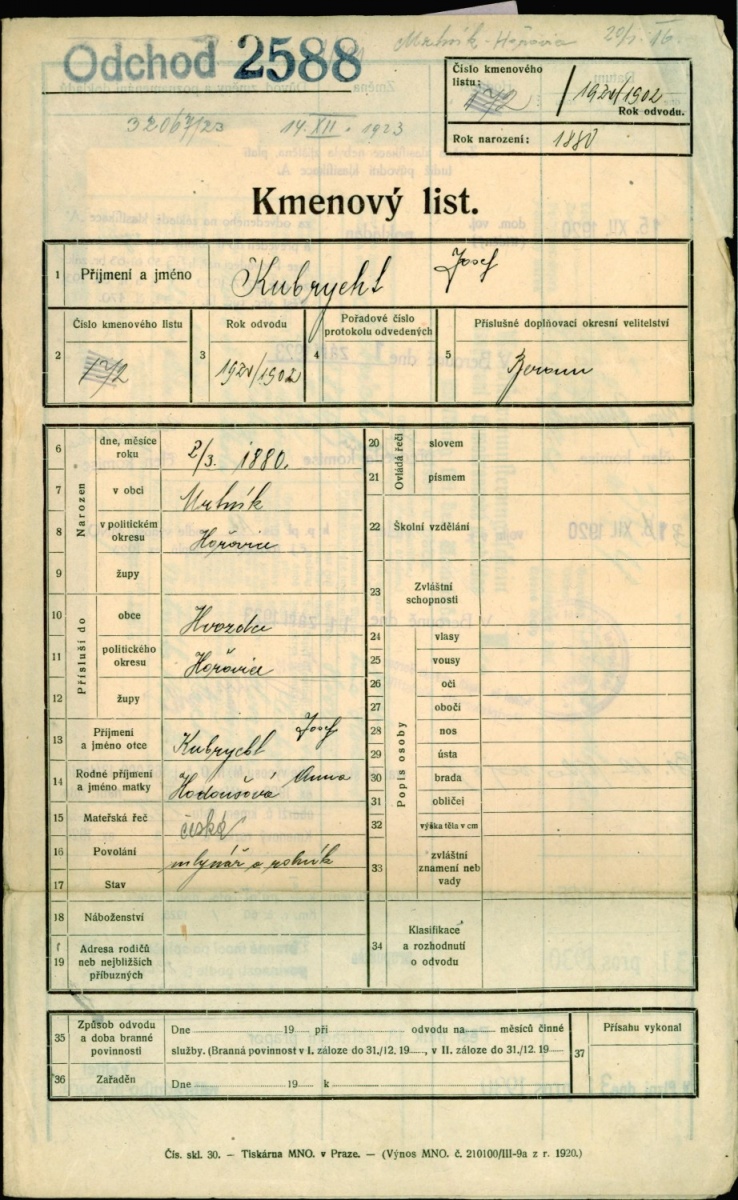 Odchod 2588
32067/23 14. XII. 1923
Číslo kmenového
listu:
172 / 1920/1902
Rok odvodu.
Rok narození: 1880
Kmenový list.
1 Příjmení a jméno Kubrycht Josef
2 Číslo kmenového listu 172
3 Rok odvodu 1920/1902
4 Pořadové číslo
protokolu odvedených
5 Příslušné doplňovací okresní velitelství
Beroun
Narozen
6 dne, měsíce
roku 2/3. 1880.
7 v obci
8 v politickém
okresu Hořovice
9 župy
Přísluší do
10 obce Hvozdec
11 politického
okresu Hořovice
12 župy
13 Příjmení
a jméno otce Kubrycht Josef
14 Rodné příjmení
a jméno matky Anna
15 Mateřská řeč česká
16 Povolání mlynář a rolník
17 Stav
18 Náboženství
19 Adresa rodičů
neb nejbližších
příbuzných
Ovládá řeči
20 slovem
21 písmem
22 Školní vzdělání
23 Zvláštní
schopnosti
Popis osoby
24 vlasy
25 vousy
26 oči
27 obočí
28 nos
29 ústa
30 brada
31 obličej
32 výška těla v cm
33 zvláštní
znamení neb
vady
34 Klasifikace
a rozhodnutí
o odvodu
35 Způsob odvodu
a doba branné
povinnosti
Dne 19 při odvodu na měsíců činné
služby. (Branná povinnost v I. záloze do 31./12. 19 , v II. záloze do 31./12. 19
36 Zařaděn Dne 19 k
37 Přísahu vykonal
Čís. skl. 30. — Tiskárna MNO. v Praze. — (Výnos MNO. č. 210100/III-9a z r. 1920.)